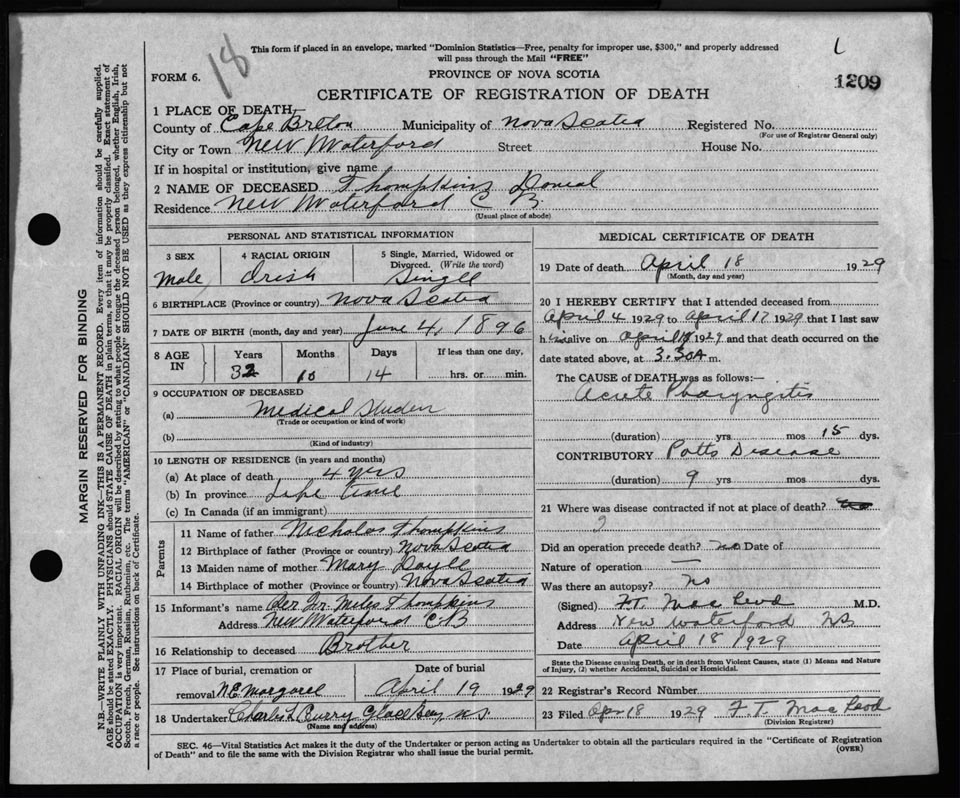 18
This form if placed in an envelope, marked "Dominion Statistics—Free, penalty for improper use, $300," and properly addressed
will pass through the Mail "FREE"
L
FORM 6.
PROVINCE OF NOVA SCOTIA
1209
CERTIFICATE OF REGISTRATION OF DEATH
1 PLACE OF DEATH,
County of Cape Breton Municipality of Nova Scotia Registered No.
(For use of Registrar General only)
City or Town New Waterford Street House No.
If in hospital or institution, give name
2 NAME OF DECEASED Thompkins Danial
Residence New Waterford C B.
(Usual place of abode)
PERSONAL AND STATISTICAL INFORMATION
3 SEX
Male
4 RACIAL ORIGIN
Irish
5 Single, Married, Widowed or
Divorced. (Write the word)
Single
6 BIRTHPLACE (Province or country) Nova Scotia
7 DATE OF BIRTH (month, day and year) June 4, 1896
8 AGE
IN
Years Months Days If less than one day,
32 10 14 hrs. or min.
9 OCCUPATION OF DECEASED
(a) Medical Studen
(Trade or occupation or kind of work)
(b)
(Kind of industry)
10 LENGTH OF RESIDENCE (in years and months)
(a) At place of death 4 yrs
(b) In province Life time
(c) In Canada (if an immigrant)
Parents
11 Name of father Nicholas Thompkins
12 Birthplace of father (Province or country) Nova Scotia
13 Maiden name of mother Mary Doyle
14 Birthplace of mother (Province or Country) Nova Scotia
15 Informant's name Rev Dr. Miles Thompkins
Address New Waterford C.B
16 Relationship to deceased Brother
17 Place of burial, cremation or
removal N.E. Margaree
Date of burial
April 19 1929
18 Undertaker Charles L Curry Glace Bay, N.S
(Name and address)
MEDICAL CERTIFICATE OF DEATH
19 Date of death April 18 1929
(Month, day and year)
20 I HEREBY CERTIFY that I attended deceased from
April 4 1929 to April 17 1929 that I last saw
him alive on April 17 1929 and that death occurred on the
date stated above, at 3.30A m.
The CAUSE of DEATH was as follows:—
Acute Pharyngitis
(duration) yrs mos 15 dys.
CONTRIBUTORY Potts Disease
(duration) 9 yrs mos dys.
21 Where was disease contracted if not at place of death? no
?
Did an operation precede death? no Date of
Nature of operation —
Was there an autopsy? No
(Signed) F.T. MacLeod M.D.
Address New Waterford NS
Date April 18 1929
State the Disease causing Death, or in death from Violent Causes, state (1) Means and Nature
of Injury, (2) whether Accidental, Suicidal or Homicidal.
22 Registrar's Record Number
23 Filed Apr 18 1929 F.T. MacLeod
(Division Registrar)
SEC. 46—Vital Statistics Act makes it the duty of the Undertaker or person acting as Undertaker to obtain all the particulars required in the "Certificate of Registration
of Death" and to file the same with the Division Registrar who shall issue the burial permit.
(OVER)
MARGIN RESERVED FOR BINDING
N.B.—WRITE PLAINLY WITH UNFADING INK—THIS IS A PERMANENT RECORD. Every item of information should be carefully supplied.
AGE should be stated EXACTLY. PHYSICIANS should STATE CAUSE OF DEATH in plain terms, so that it may be properly classified. Exact statement of
OCCUPATION is very important. RACIAL ORIGIN will be described by stating to what people or tongue the deceased person belonged, whether English, Irish,
Scotch, French, German, Russian, Ruthenian, etc. The terms "AMERICAN" or "CANADIAN" SHOULD NOT BE USED as they express citizenship but not
a race or people. See instructions on back of Certificate.